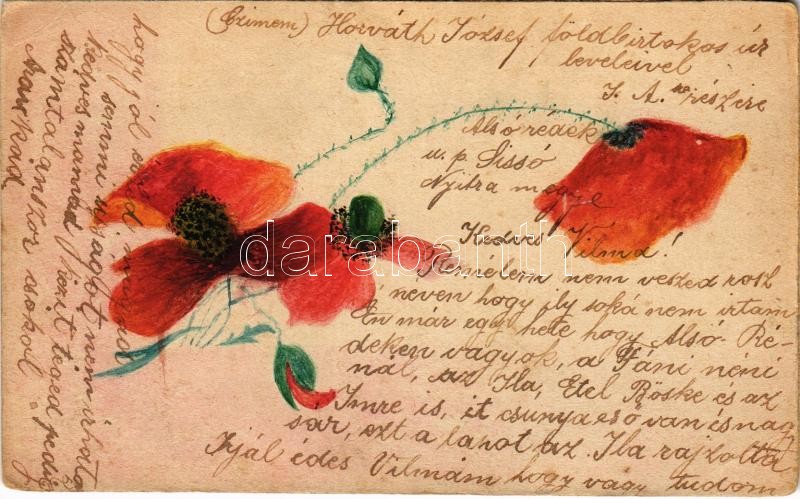 (Czimem) Horváth József földbirtokos úr
leveleivel
J. A. részére
Alsó rédék
u. p. Sissó
Nyitra megye
Kedves Vilma!
Remélem nem veszed rosz
néven hogy ily soká nem irtam
Én már egy hete hogy Alsó Ré-
deken vagyok, a Fáni néni
nál, az Ila, Etel Böske és az
Imre is, it csunya eső van és nagy
sár, ezt a lapot az Ila rajzolta
Irjál édes Vilmám hogy vagy tudom
hogy jól
semmi ujságot nem irhato
képes mamád
számtalanszor csokol
darabanth